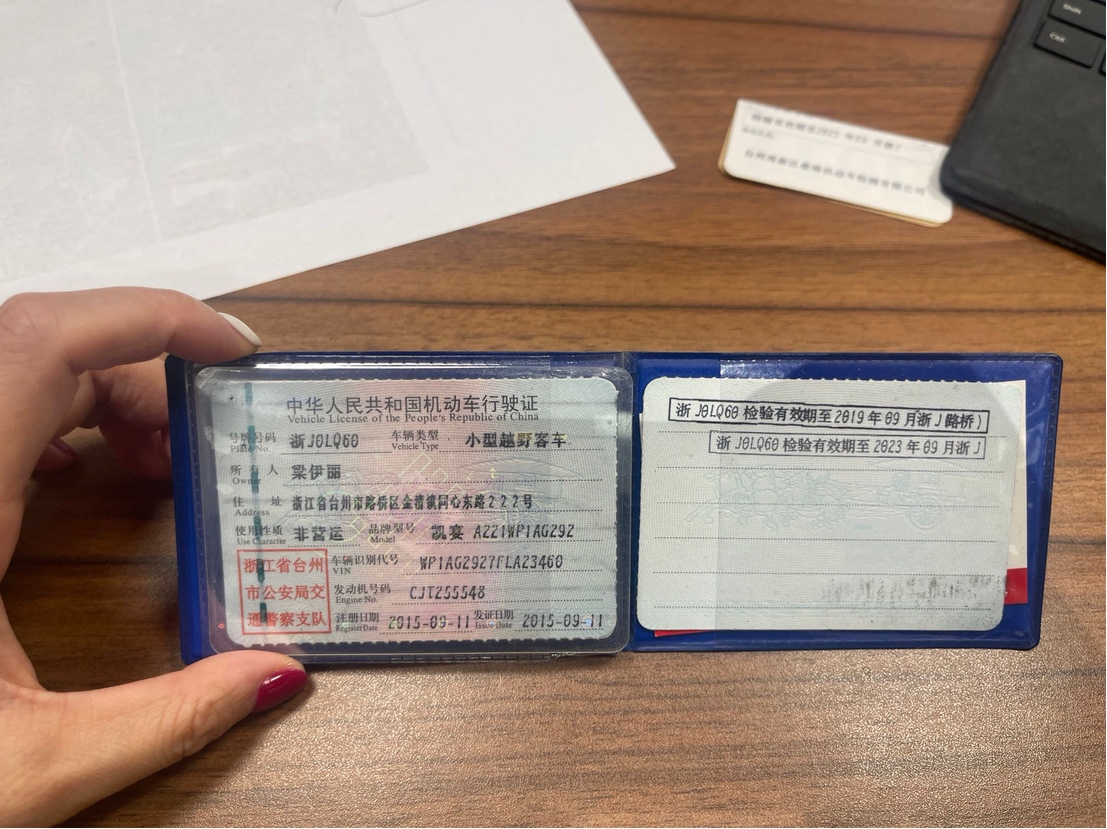 中华人民共和国机动车行驶证
Vehicle License of the People's Republic of China
号牌号码 浙J0LQ60 车辆类型 小型越野客车
Plate No. Vehicle Type
所有人 梁伊丽
Owner
住址 浙江省台州市路桥区金清镇同心东路222号
Address
使用性质 非营运 品牌型号 凯宴 AZZ1WP1AG292
Use Character Model
浙江省台州
市公安局交
通警察支队
车辆识别代号 WP1AG2927FLA23460
VIN
发动机号码 CJTZ55548
Engine No.
注册日期 2015-09-11 发证日期 2015-09-11
Register Date Issue Date
浙 J0LQ60 检验有效期至 2019 年 09 月浙 J(路桥)
浙 J0LQ60 检验有效期至 2023 年 09 月浙 J
Shift
Ctrl